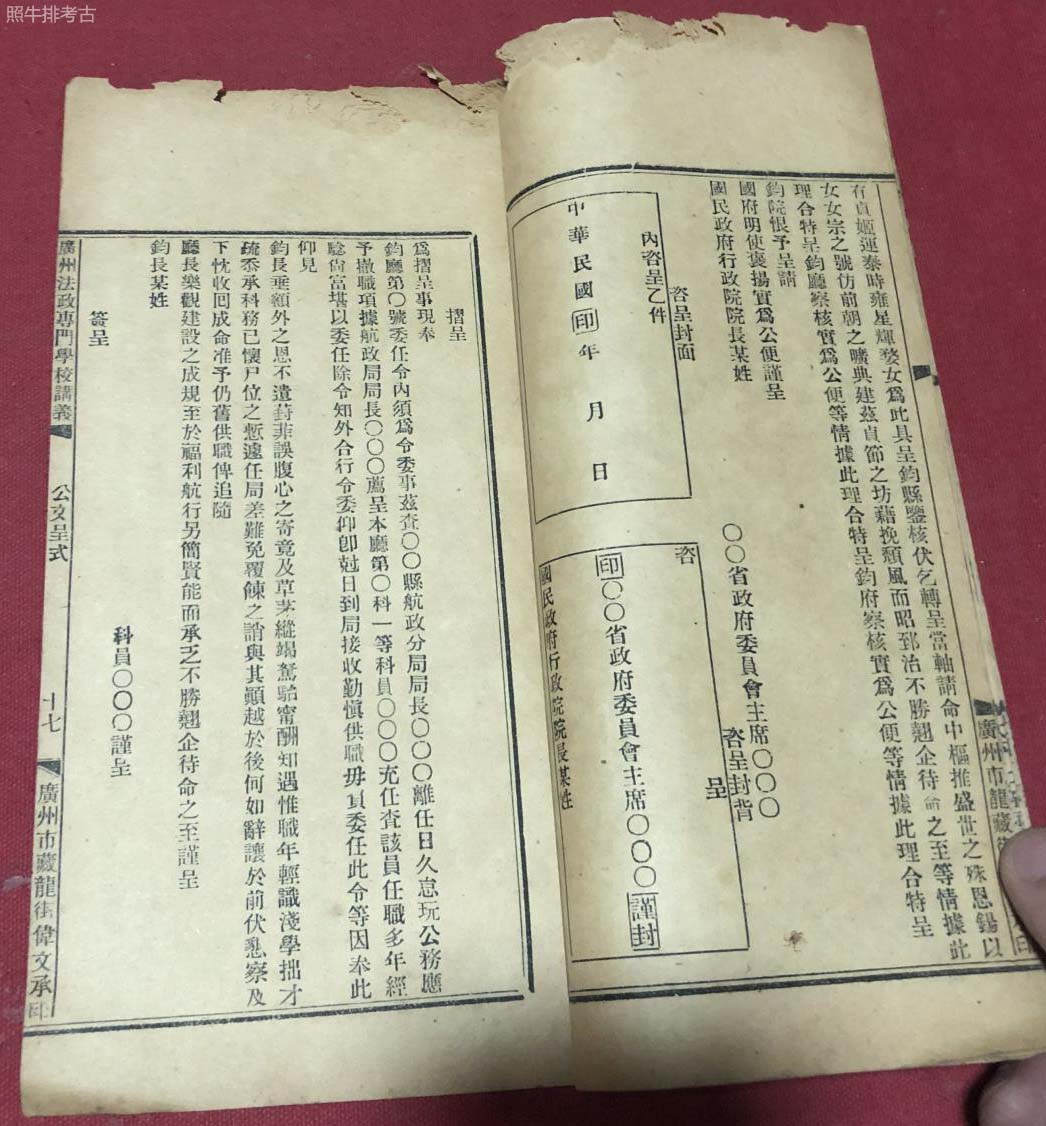 照牛排考古
有貞姬運泰時雍星輝婺女爲此具呈鈞縣鑒核伏乞轉呈當軸請命中樞推盛世之殊恩錫以
女女宗之號仿前朝之曠典建茲貞節之坊藉挽頹風而昭郅治不勝翹企待命之至等情據此
理合特呈鈞廳察核實爲公便等情據此理合特呈鈞府察核實爲公便等情據此理合特呈
鈞院恨予呈請
國府明使褒揚實爲公便謹呈
國民政府行政院院長某姓
〇〇省政府委員會主席〇〇〇
咨呈封面
內咨呈乙件
中華民國印年 月 日
咨呈封背
咨 呈
印〇〇省政府委員會主席〇〇〇謹封
國民政府行政院院長某姓
廣州市龍藏街
摺呈
爲摺呈事現奉
鈞廳第〇號委任令內須爲令委事茲查〇〇縣航政分局局長〇〇〇離任日久怠玩公務應
予撤職項據航政局局長〇〇〇薦呈本廳第〇科一等科員〇〇〇充任查該員任職多年經
驗尙富堪以委任除令知外合行令委仰卽尅日到局接收勤愼供職毋負委任此令等因奉此
仰見
鈞長垂額外之恩不遺葑菲誤腹心之寄竟及草茅縱竭駑駘甯酬知遇惟職年輕識淺學拙才
疏忝承科務已懷尸位之慙遽任局差難免覆餗之誚與其顚越於後何如辭讓於前伏懇察及
下忱收回成命准予仍舊供職俾追隨
廳長樂觀建設之成規至於福利航行另簡賢能而承乏不勝翹企待命之至謹呈
鈞長某姓
科員〇〇〇謹呈
簽呈
廣州法政專門學校講義
公文呈式
十七
廣州市藏龍街偉文承印